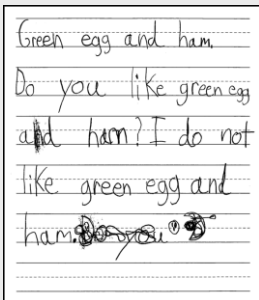 Green egg and ham.
Do you like green egg
and ham? I do not
like green egg and
ham.